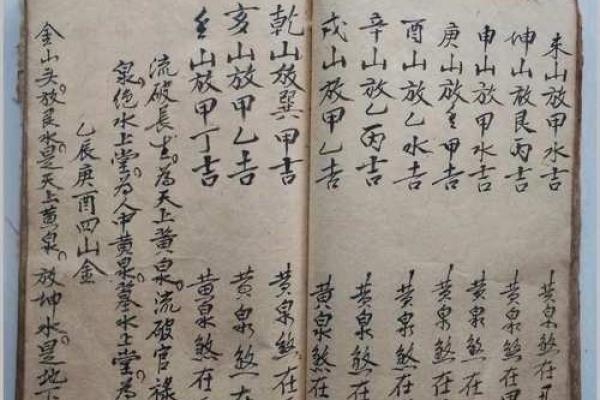 未山放甲水吉 黄泉煞在
坤山放艮丙吉 黄泉煞在
申山放甲水吉 黄泉煞在
庚山放壬甲吉 黄泉煞在
酉山放乙水吉 黄泉煞在
辛山放乙丙吉 黄泉煞在
戌山放甲乙吉 黄泉煞在
乾山放巽甲吉 黄泉煞在
亥山放甲乙吉 黄泉煞在
壬山放甲丁吉 黄泉煞在
流破長生。為天上黄泉。流破官祿
泉。絶水上堂。為人中黄泉。墓水上堂。為
乙辰庚酉四山金
金山头。放艮水。是天上黄泉。放坤水。是地下